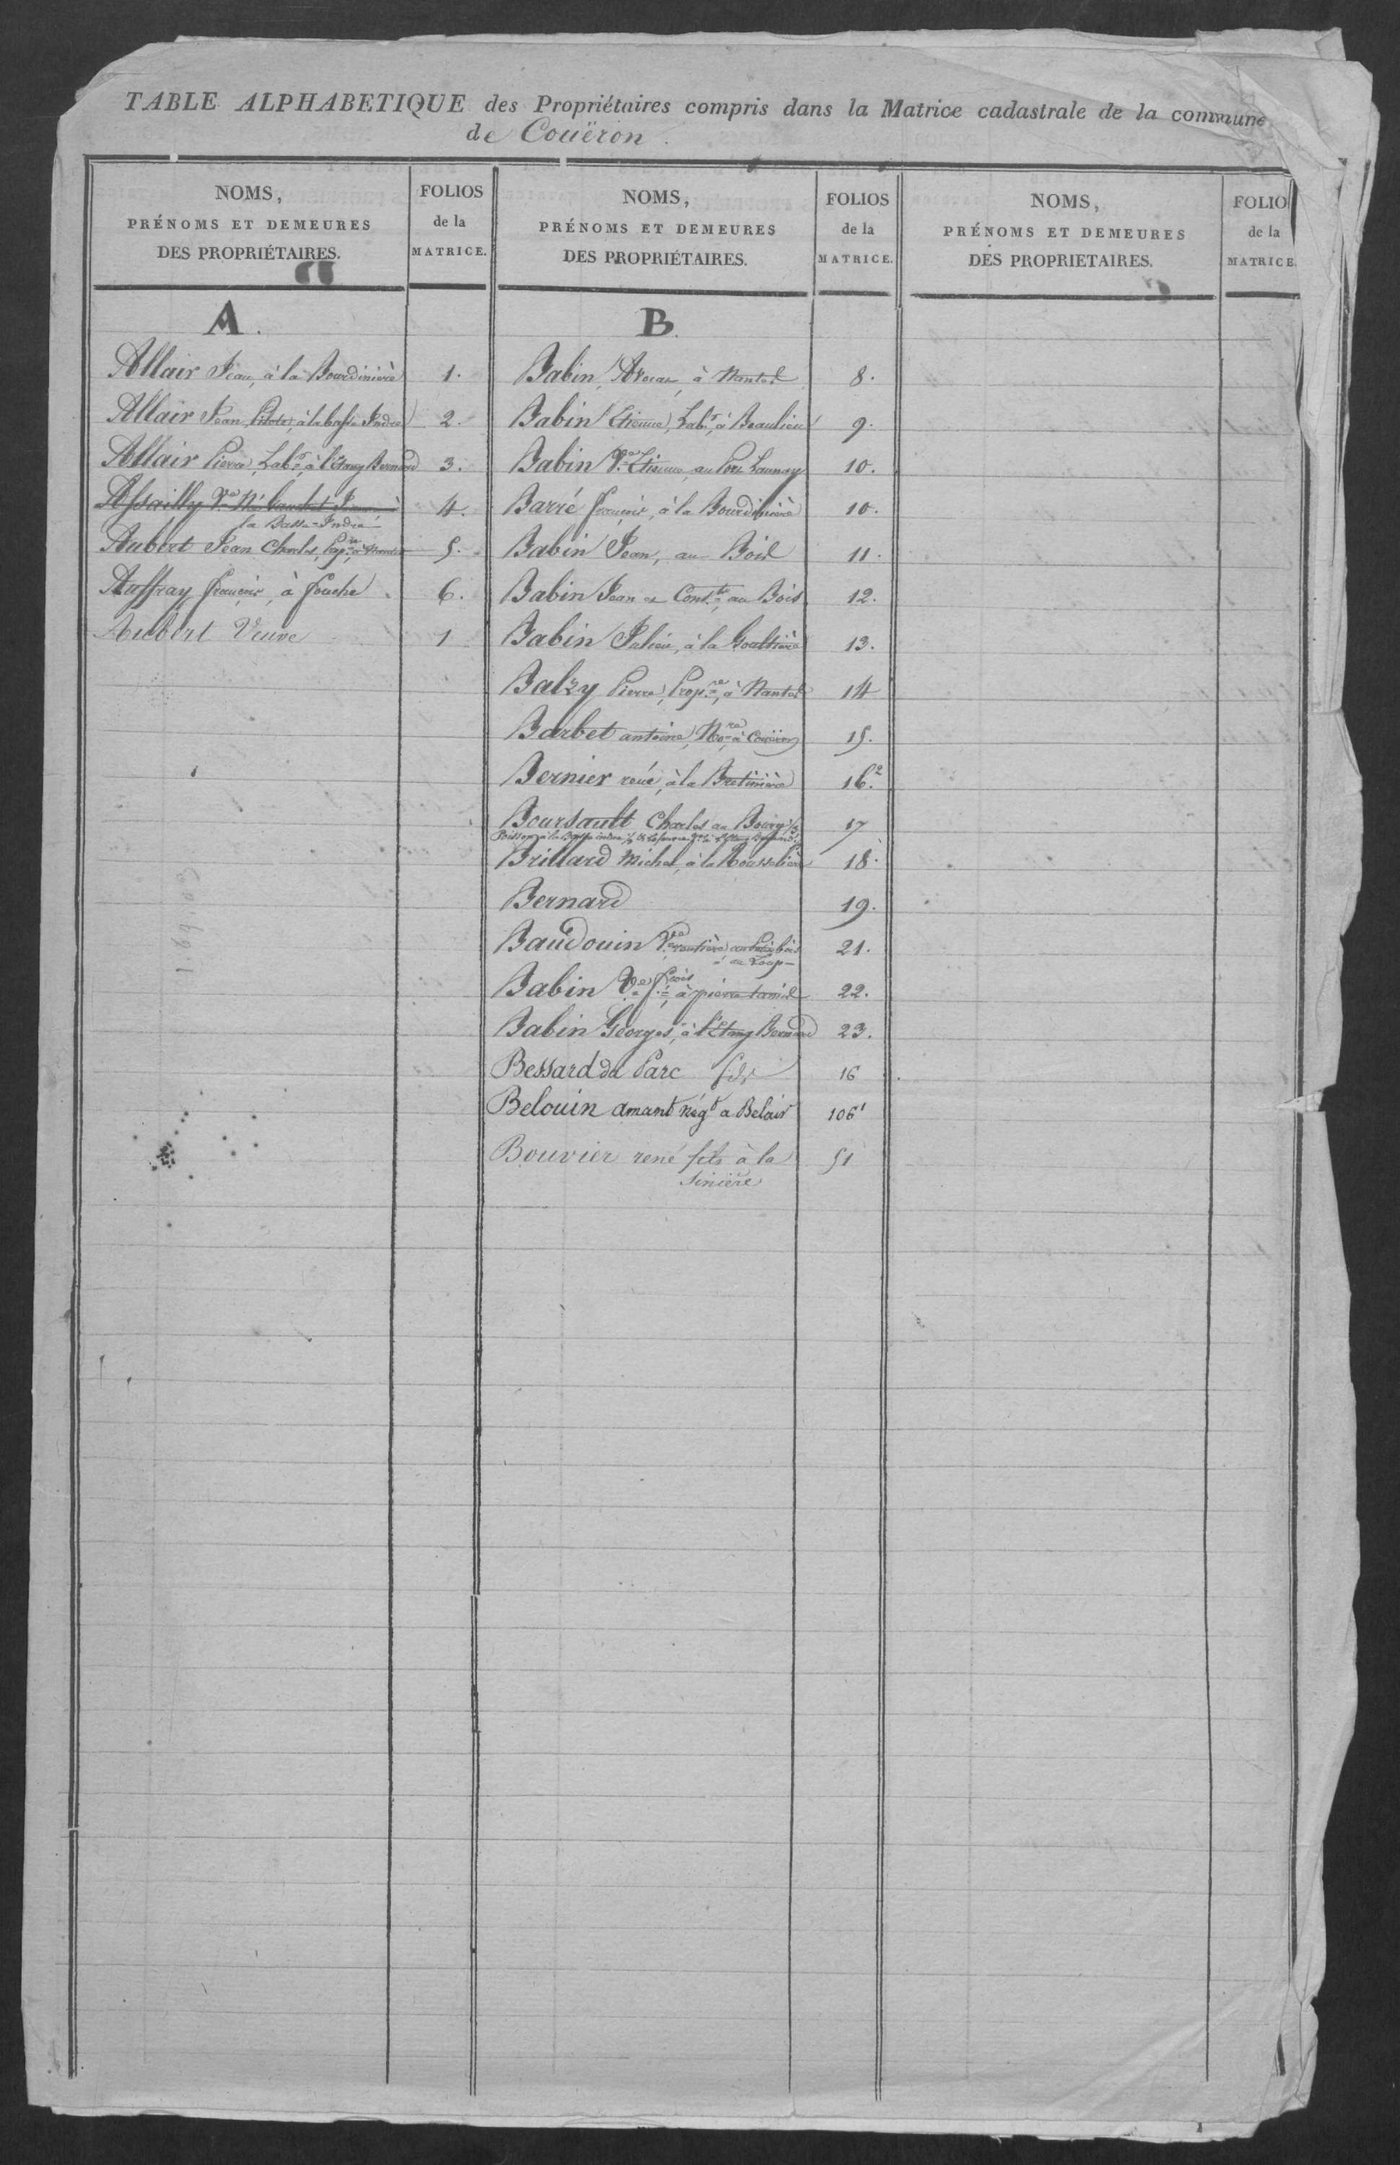 TABLE ALPHABETIQUE des Propriétaires compris dans la Matrice cadastrale de la commune
de Couëron.
NOMS,
PRÉNOMS ET DEMEURES
DES PROPRIÉTAIRES.
FOLIOS
de la
MATRICE.
A.
Allair Jean, à la Bourdinière 1.
Allair Jean, Pilote, à la basse Indre 2.
Allair Pierre, Lab.r, à l'Etang Bernard 3.
Assailly V.e à 4.
la Basse-Indre
Aubert Jean Charles, Prop.re à Nantes 5.
Auffray françois, à fouche 6.
Aubert Veuve 1
1.69.63
NOMS,
PRÉNOMS ET DEMEURES
DES PROPRIÉTAIRES.
FOLIOS
de la
MATRICE.
B.
Babin, Avocat, à Nantes 8.
Babin Etienne, Lab.r, à Beaulieu 9.
Babin V.e Etienne, au Port Launay 10.
Barré françois, à la Bourdinière 10.
Babin Jean, au Bois 11.
Babin Jean et Cons.ts, au Bois 12.
Babin Julien, à la Goultière 13.
Balzy Pierre, Prop.re, à Nantes 14
Barbet antoine, No.re à Couëron 15.
Bernier rené, à la Bretinière 16.2
Boursault Charles au Bourg 17
à la Basse indre
Brillard Michel, à la Rousselière 18.
Bernard 19.
Baudouin V.e 21.
au Loup
Babin V.e f.çois, à pierre 22.
Babin Georges, à l'Etang Bernard 23.
Bessard du Parc fils 16
Belouin amant négt a Belair 106'
Bouvier rené fils à la 51
sinière
NOMS,
PRÉNOMS ET DEMEURES
DES PROPRIETAIRES.
FOLIO
de la
MATRICE.